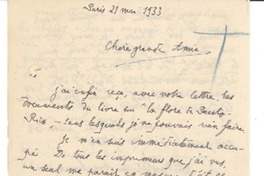 Paris 21 mai 1933
Chère grande Amie
J'ai enfin reçu, avec votre lettre, les
documents du livre sur "la flore de Puerto-
Rico", sans lesquels je ne pouvais rien faire.
Je m'en suis immédiatement occu-
pé. De tous les imprimeurs que j'ai vus,
un seul me paraît